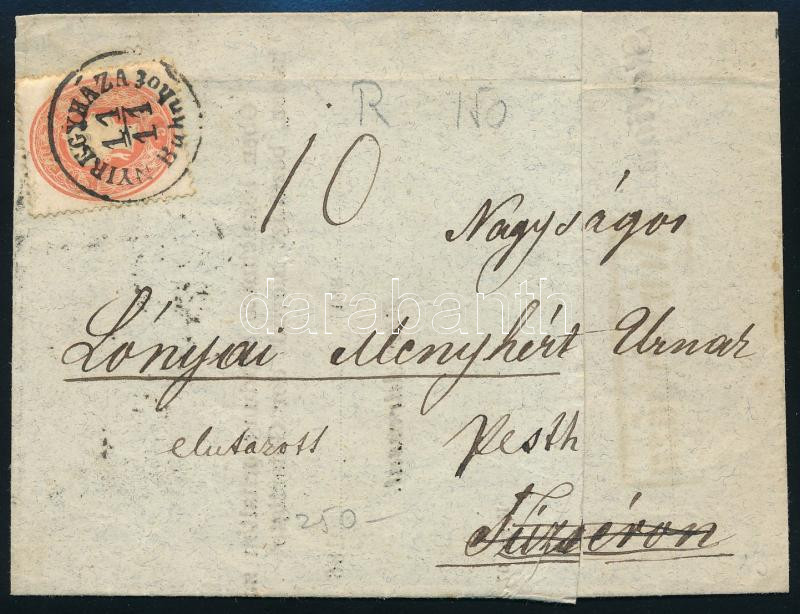 NYIREGYHÁZA
11
11
R 150
10
Nagyságos
Lónyai Menyhért Urnak
elutazott Pesth
250-
darabanth